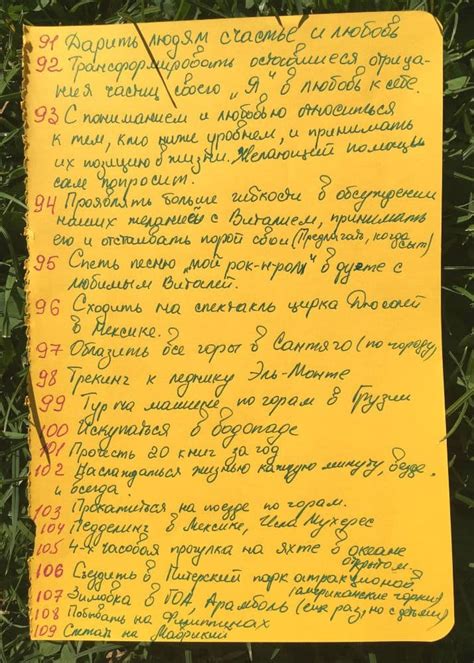 91 Дарить людям счастье и любовь
92 Трансформировать оставшиеся отрица-
ния частиц своего „Я" в любовь к себе.
93 С пониманием и любовью относиться
к тем, кто ниже уровнем, и принимать
их позицию в жизни. Желающий помощи
сам попросит.
94 Проявлять больше гибкости в обсуждении
наших желаний с Виталием, принимать
его и отстаивать порой свои (Предлагать, когда
сыт)
95 Спеть песню „мой рок-н-ролл" в дуэте с
любимым Виталей.
96 Сходить на спектакль цирка Дюсолей
в Мексике.
97 Облазить все горы в Сантяго (по городу)
98 Трекинг к леднику Эль-Монте
99 Тур на машине по горам в Грузии
100 Искупаться в водопаде
101 Прочесть 20 книг за год
102 Наслаждаться жизнью каждую минуту, везде
и всегда.
103 Прокатиться на поезде по горам.
104 Педделинг в Мексике, Исла Мухерес
105 4-х часовая прогулка на яхте в океане
открытом.
106 Съездить в Питерский парк атракционов
(американские горки)
107 Зимовка в ГОА, Арамболь (ещё раз, но с детьми)
108 Побывать на Филиппинах
109 Слетать на Маврикий